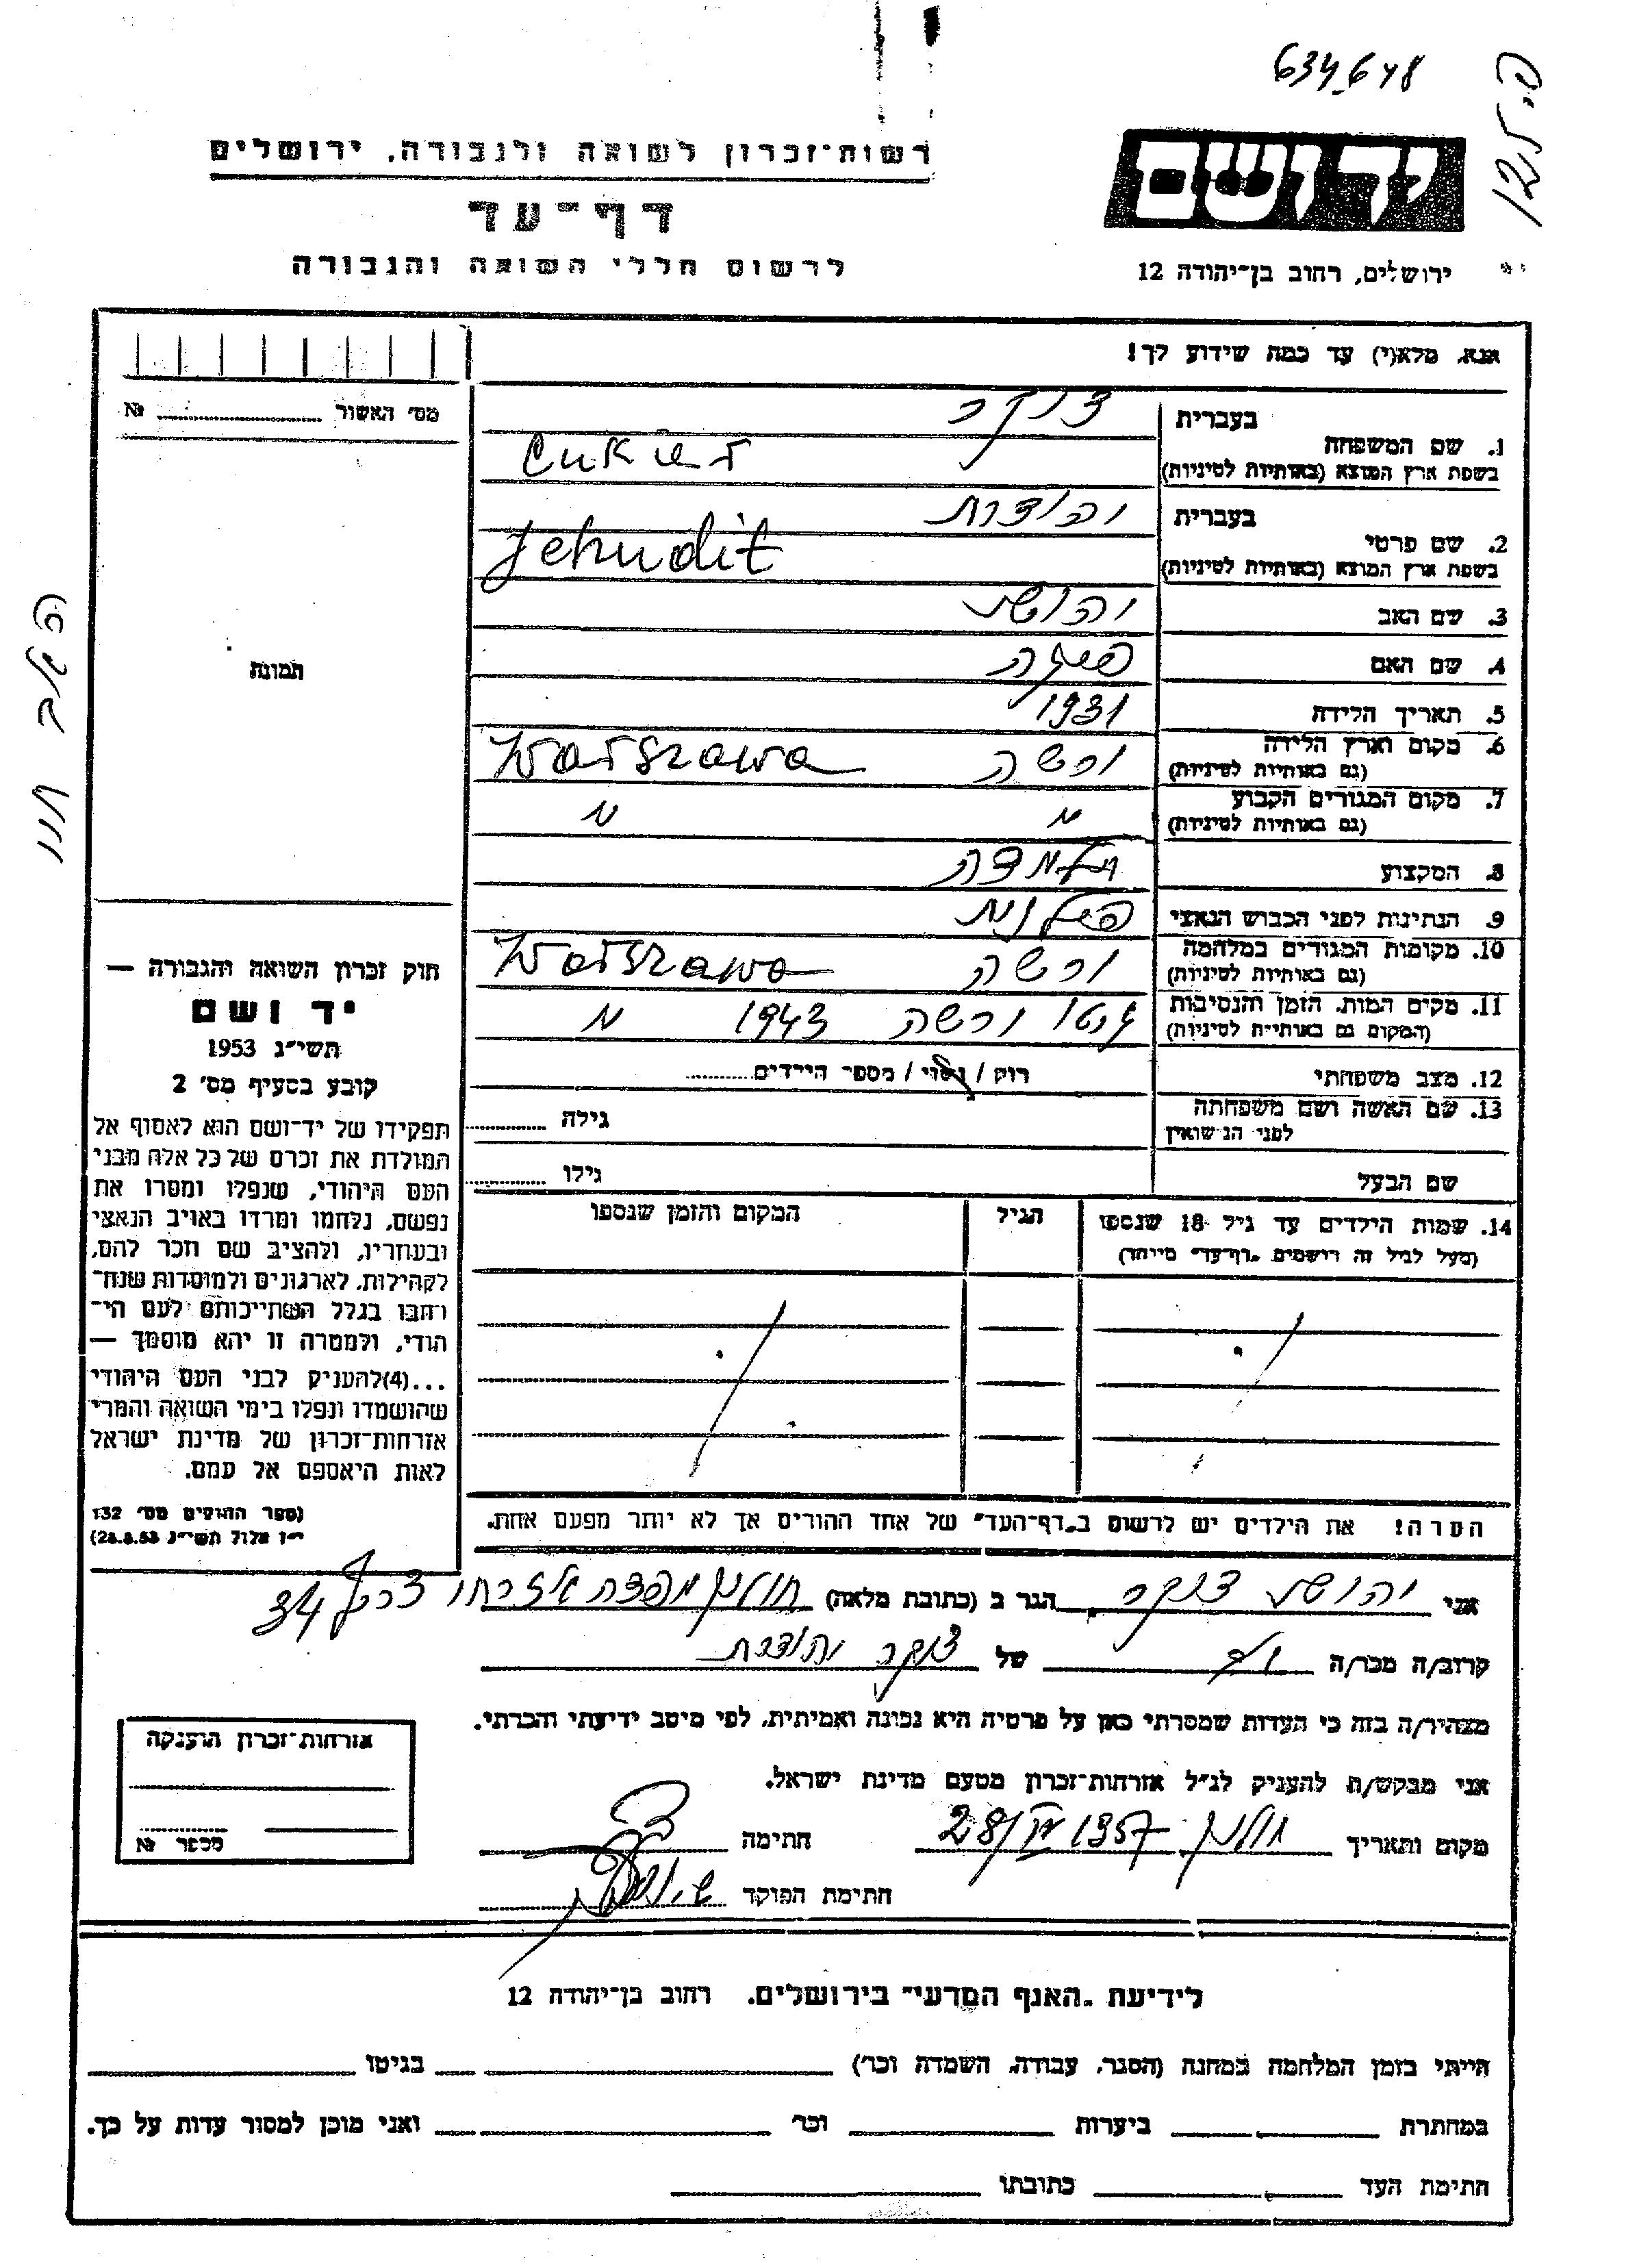 634648
רשות־זכרון לשואה ולגבורה, ירושלים
יד ושם
דף־עד
לרשום חללי השואה והגבורה
ירושלים, רחוב בן־יהודה 12
אנא, מלא(י) עד כמה שידוע לך!
מס׳ האשור № 
1. שם המשפחה
בעברית צוקר
בשפת ארץ המוצא (באותיות לטיניות) Cukier
2. שם פרטי
בעברית יהודית
בשפת ארץ המוצא (באותיות לטיניות) Jehudit
3. שם האב יהושע
4. שם האם
5. תאריך הלידה 1931
6. מקום וארץ הלידה ורשה Warszawa
(גם באותיות לטיניות)
7. מקום המגורים הקבוע
(גם באותיות לטיניות)
8. המקצוע תלמידה
9. הנתינות לפני הכבוש הנאצי פולנית
10. מקומות המגורים במלחמה ורשה Warszawa
(גם באותיות לטיניות)
11. מקום המות, הזמן והנסיבות גטו ורשה 1943
(המקום גם באותיות לטיניות)
12. מצב משפחתי רווק / נשוי / מספר הילדים
13. שם האשה ושם משפחתה גילה
לפני הנישואין
שם הבעל גילו
14. שמות הילדים עד גיל 18 שנספו הגיל המקום והזמן שנספו
(מעל לגיל זה רושמים „דף־עד״ מיוחד)
הערה! את הילדים יש לרשום ב„דף־העד״ של אחד ההורים אך לא יותר מפעם אחת.
תמונה
חוק זכרון השואה והגבורה —
יד ושם
תשי״ג 1953
קובע בסעיף מס׳ 2
תפקידו של יד־ושם הוא לאסוף אל
המולדת את זכרם של כל אלה מבני
העם היהודי, שנפלו ומסרו את
נפשם, נלחמו ומרדו באויב הנאצי
ובעוזריו, ולהציב שם וזכר להם,
לקהילות, לארגונים ולמוסדות שנח־
רבו בגלל השתייכותם לעם הי־
הודי, ולמטרה זו יהא מוסמך —
...(4)להעניק לבני העם היהודי
שהושמדו ונפלו בימי השואה והמרי
אזרחות־זכרון של מדינת ישראל
לאות היאספם אל עמם.
(ספר החוקים מס׳ 132
י״ז אלול תשי״ג 28.8.53)
אני יהושע צוקר הגר ב (כתובת מלאה) חולון 34
קרוב/ה מכר/ה של צוקר יהודית
מצהיר/ה בזה כי העדות שמסרתי כאן על פרטיה היא נכונה ואמיתית, לפי מיטב ידיעתי והכרתי.
אני מבקש/ת להעניק לנ״ל אזרחות־זכרון מטעם מדינת ישראל.
מקום ותאריך חולון 1957 חתימה
חתימת הפוקד
אזרחות־זכרון הוענקה
מספר №
לידיעת „האגף המדעי״ בירושלים, רחוב בן־יהודה 12
הייתי בזמן המלחמה במחנה (הסגר, עבודה, השמדה וכו׳) בגיטו
במחתרת ביערות וכו׳ ואני מוכן למסור עדות על כך.
חתימת העד כתובתו